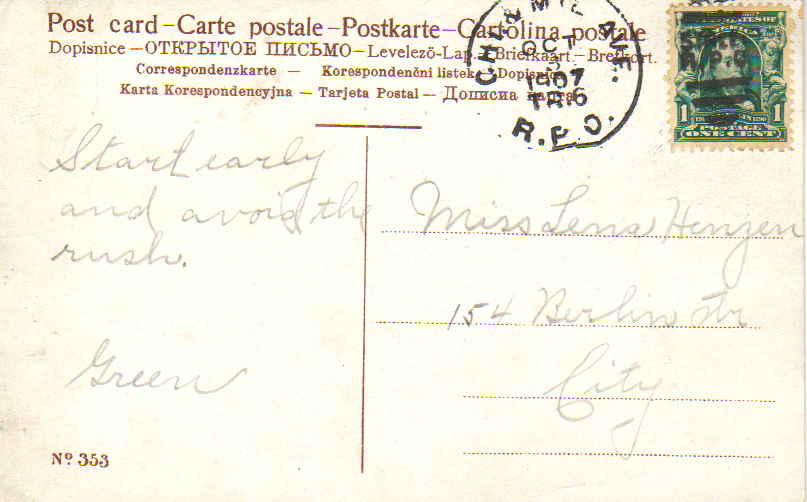 Post card – Carte postale – Postkarte – Cartolina postale
Dopisnice – ОТКРЫТОЕ ПИСЬМО – Levelező-Lap. – Briefkaart – Brefkort.
Correspondenzkarte — Korespondenční listek – Dopisnica
Karta Korespondencyjna – Tarjeta Postal – Дописна карта
MIL. AVE.
OCT
5
1907
TR 6
R.P.O.
R.P.O
1 1
POSTAGE
ONE CENT
Start early
and avoid the
rush.
Green
Miss Lena Henzen
154 Berlin str
City
Nº 353